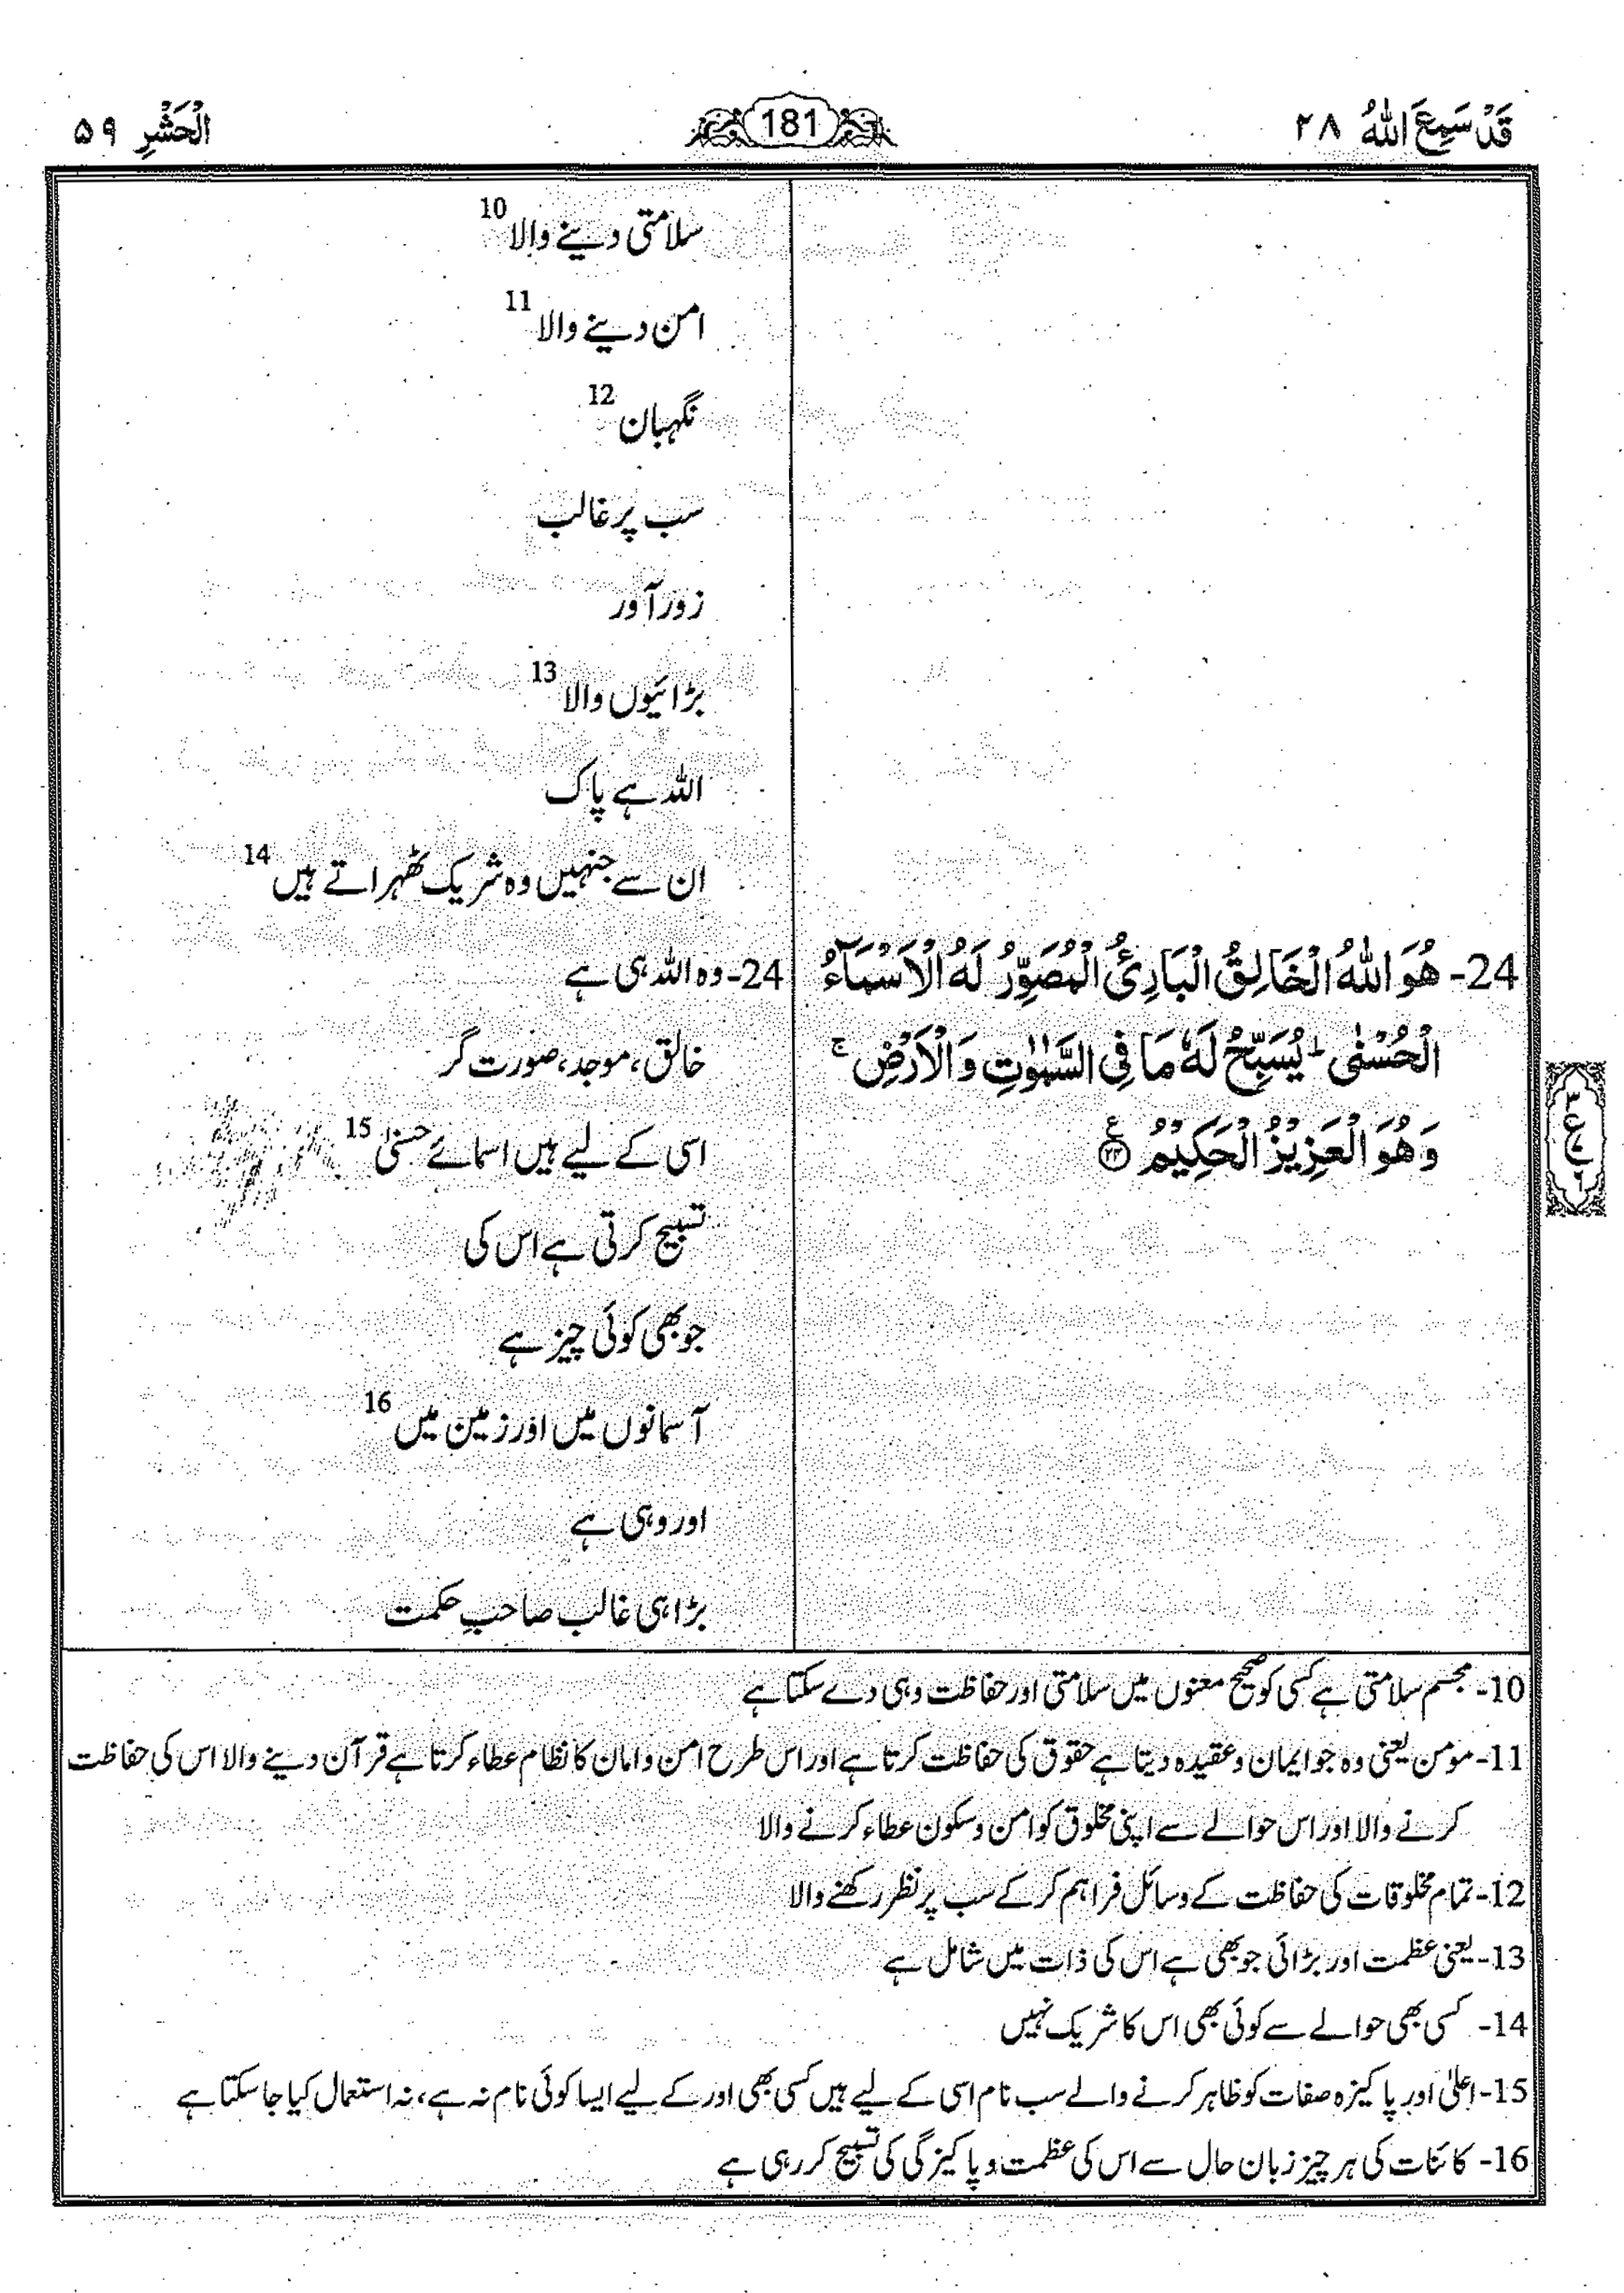 قَدْ سَمِعَ اللّٰهُ ۲۸
181
الْحَشْرِ ۵۹
سلامتی دینے والا 10
امن دینے والا 11
نگہبان 12
سب پر غالب
زورآور
بڑائیوں والا 13
اللہ ہے پاک
ان سے جنہیں وہ شریک ٹھہراتے ہیں 14
24- هُوَ اللّٰهُ الْخَالِقُ الْبَارِئُ الْمُصَوِّرُ لَهُ الْاَسْمَآءُ
الْحُسْنٰى ؕ يُسَبِّحُ لَهٗ مَا فِى السَّمٰوٰتِ وَ الْاَرْضِ ۚ
وَ هُوَ الْعَزِيْزُ الْحَكِيْمُ ﴿۲۴﴾ ع
24- وہ اللہ ہی ہے
خالق، موجد، صورت گر
اسی کے لیے ہیں اسمائے حسنیٰ 15
تسبیح کرتی ہے اس کی
جو بھی کوئی چیز ہے
آسمانوں میں اور زمین میں 16
اور وہی ہے
بڑا ہی غالب صاحبِ حکمت
10- مجسم سلامتی ہے کسی کو صحیح معنوں میں سلامتی اور حفاظت وہی دے سکتا ہے
11- مومن یعنی وہ جو ایمان و عقیدہ دیتا ہے حقوق کی حفاظت کرتا ہے اور اس طرح امن و امان کا نظام عطاء کرتا ہے قرآن دینے والا اس کی حفاظت
کرنے والا اور اس حوالے سے اپنی مخلوق کو امن و سکون عطاء کرنے والا
12- تمام مخلوقات کی حفاظت کے وسائل فراہم کر کے سب پر نظر رکھنے والا
13- یعنی عظمت اور بڑائی جو بھی ہے اس کی ذات میں شامل ہے
14- کسی بھی حوالے سے کوئی بھی اس کا شریک نہیں
15- اعلیٰ اور پاکیزہ صفات کو ظاہر کرنے والے سب نام اسی کے لیے ہیں کسی بھی اور کے لیے ایسا کوئی نام نہ ہے، نہ استعمال کیا جا سکتا ہے
16- کائنات کی ہر چیز زبان حال سے اس کی عظمت و پاکیزگی کی تسبیح کر رہی ہے